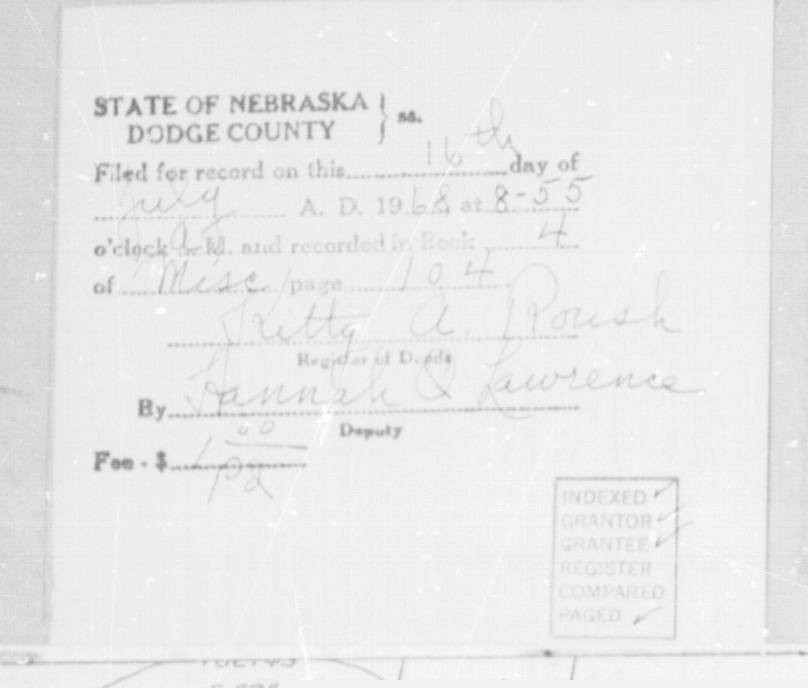 STATE OF NEBRASKA } ss.
DODGE COUNTY
Filed for record on this 16th day of
July A. D. 1968 at 8-55
o'clock A. M. and recorded in Book 4
of Misc page 104
Kitty A. Roush
Register of Deeds
By Hannah J Lawrence
Deputy
Fee - $ 1 00
pd
INDEXED ✓
GRANTOR ✓
GRANTEE ✓
REGISTER
COMPARED
PAGED ✓